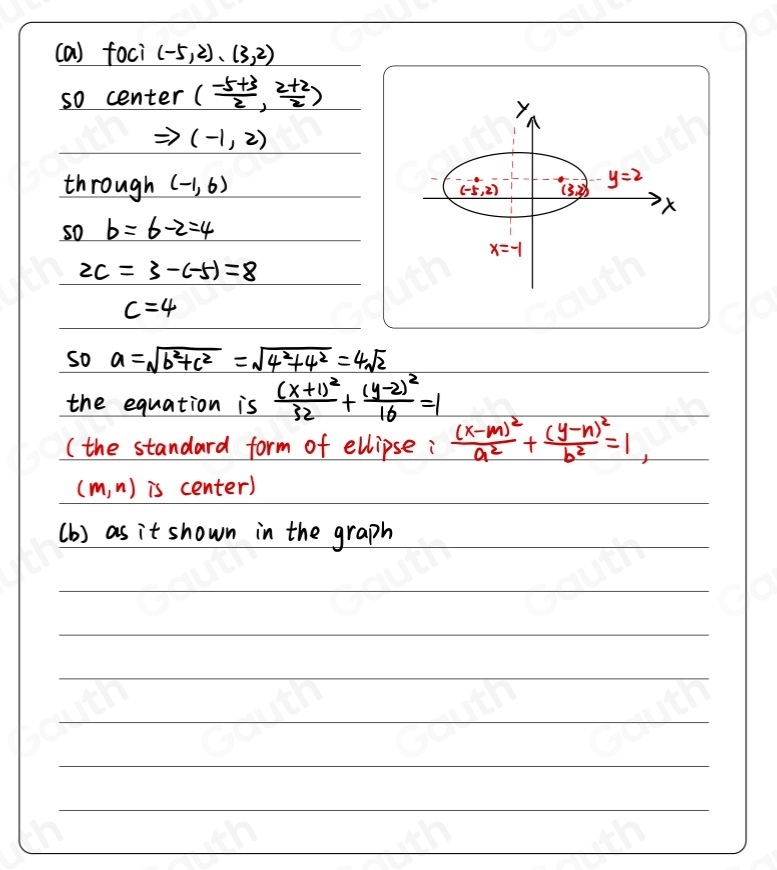 (a) foci (-5,2)、(3,2)
so center (\frac{-5+3}{2}, \frac{2+2}{2})
⇒ (-1, 2)
through (-1, 6)
so b = 6-2=4
2c = 3-(-5)=8
c=4
y
y=2
(-5,2)
(3,2)
x
x=-1
so a=√(b²+c²) =√(4²+4²) =4√2
the equation is \frac{(x+1)²}{32} + \frac{(y-2)²}{16} =1
(the standard form of ellipse: \frac{(x-m)²}{a²} + \frac{(y-n)²}{b²} =1,
(m,n) is center)
(b) as it shown in the graph
Gauth